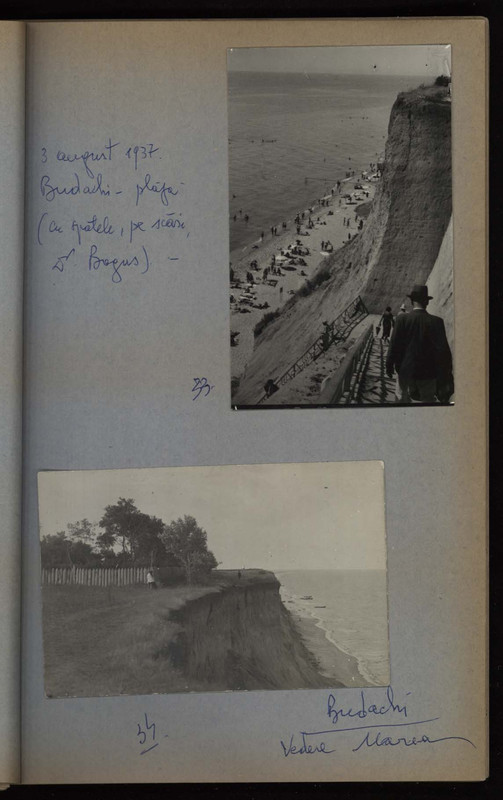 3 august 1937.
Budachi - plaja
(cu spatele, pe scări,
Dl. Bogus) -
33.
34.
Budachi
Vedere Marea